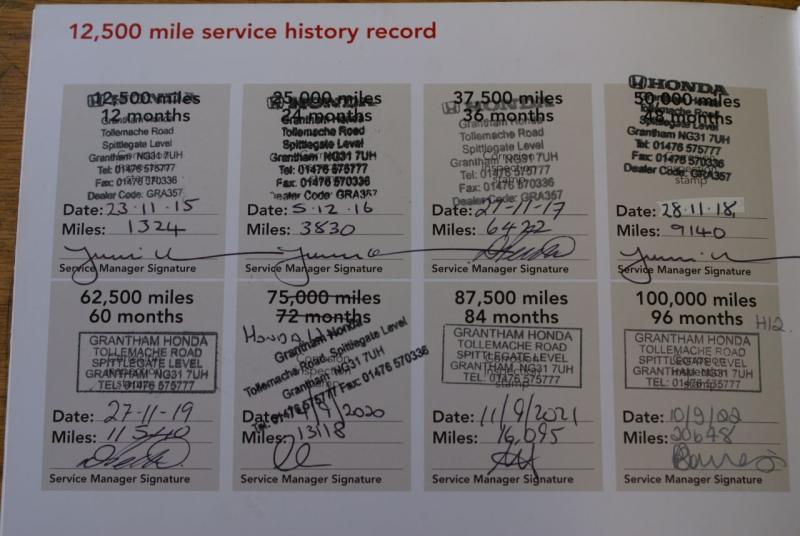 12,500 mile service history record
12,500 miles
12 months
Grantham Honda
Tollemache Road
Spittlegate Level
Grantham NG31 7UH
Tel: 01476 575777
Fax: 01476 570336
Dealer Code: GRA357
Date: 23.11.15
Miles: 1324
Service Manager Signature
25,000 miles
24 months
Tollemache Road
Spittlegate Level
Grantham NG31 7UH
Tel: 01476 575777
Fax: 01476 570336
Dealer Code: GRA357
Date: 5.12.16
Miles: 3830
Service Manager Signature
37,500 miles
36 months
HONDA
Grantham Honda
Tollemache Road
Spittlegate Level
Grantham NG31 7UH
Tel: 01476 575777
Fax: 01476 570336
Dealer Code: GRA357
Date: 27-11-17
Miles:
Service Manager Signature
HONDA
50,000 miles
48 months
Spittlegate Level
Grantham NG31 7UH
Tel: 01476 575777
Fax: 01476 570336
Dealer Code: GRA357
stamp
Date: 28.11.18
Miles: 9140
Service Manager Signature
62,500 miles
60 months
GRANTHAM HONDA
TOLLEMACHE ROAD
SPITTLEGATE LEVEL
GRANTHAM NG31 7UH
TEL: 01476 575777
Date: 27-11-19
Miles:
Service Manager Signature
75,000 miles
72 months
Grantham Honda
Tollemache Road, Spittlegate Level
Grantham NG31 7UH
Tel: 01476 575777 Fax: 01476 570336
Date: /9/2020
Miles: 13118
Service Manager Signature
87,500 miles
84 months
GRANTHAM HONDA
TOLLEMACHE ROAD
SPITTLEGATE LEVEL
GRANTHAM NG31 7UH
TEL: 01476 575777
Date: 11/9/2021
Miles: 16,095
Service Manager Signature
100,000 miles
96 months
H12.
GRANTHAM HONDA
TOLLEMACHE ROAD
SPITTLEGATE LEVEL
GRANTHAM NG31 7UH
TEL: 01476 575777
Date: 10/9/22
Miles: 20648
Service Manager Signature